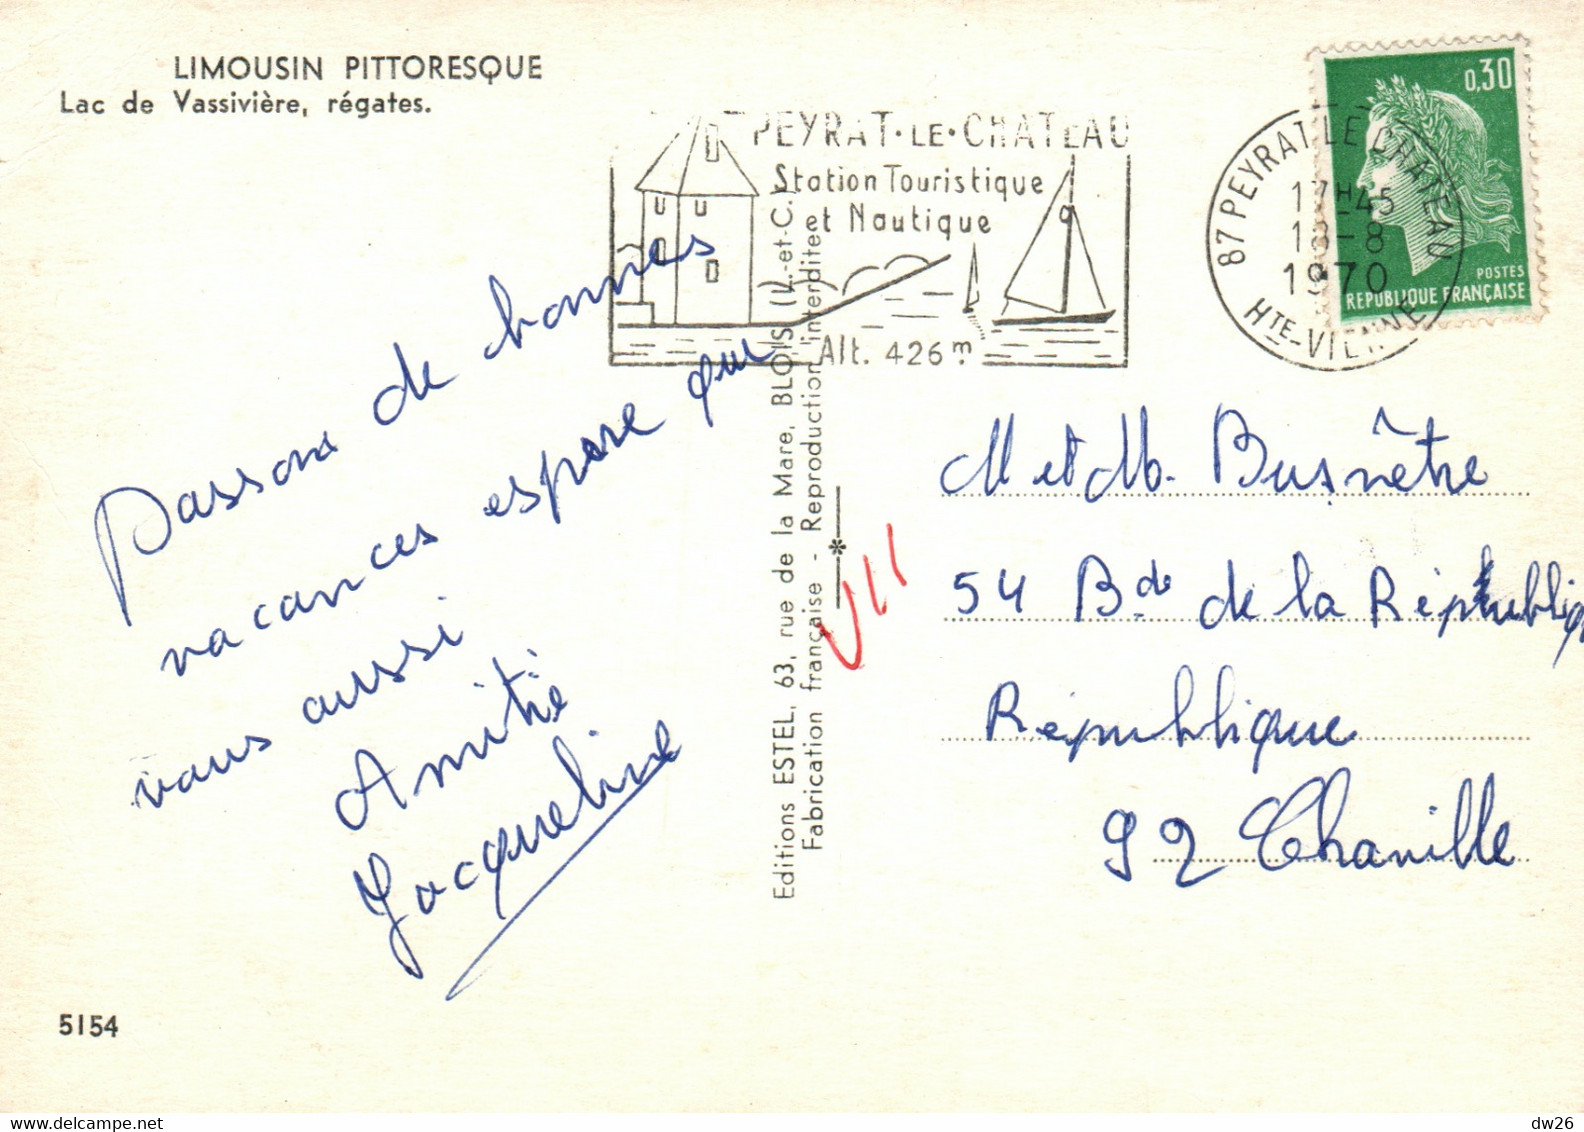 LIMOUSIN PITTORESQUE
Lac de Vassivière, régates.
PEYRAT·LE·CHATEAU
Station Touristique
et Nautique
Alt. 426 m
87 PEYRAT LE CHATEAU
17H45
18-8
1970
HTE-VIENNE
0,30
POSTES
REPUBLIQUE FRANÇAISE
Passons de bonnes
vacances espere que
vous aussi
Amitié
Jacqueline
Editions ESTEL, 63, rue de la Mare, BLOIS (L.-et-C.)
Fabrication française - Reproduction interdite
M et M. Busnêtre
54 Bde de la République
République
92 Chaville
5154
dw26